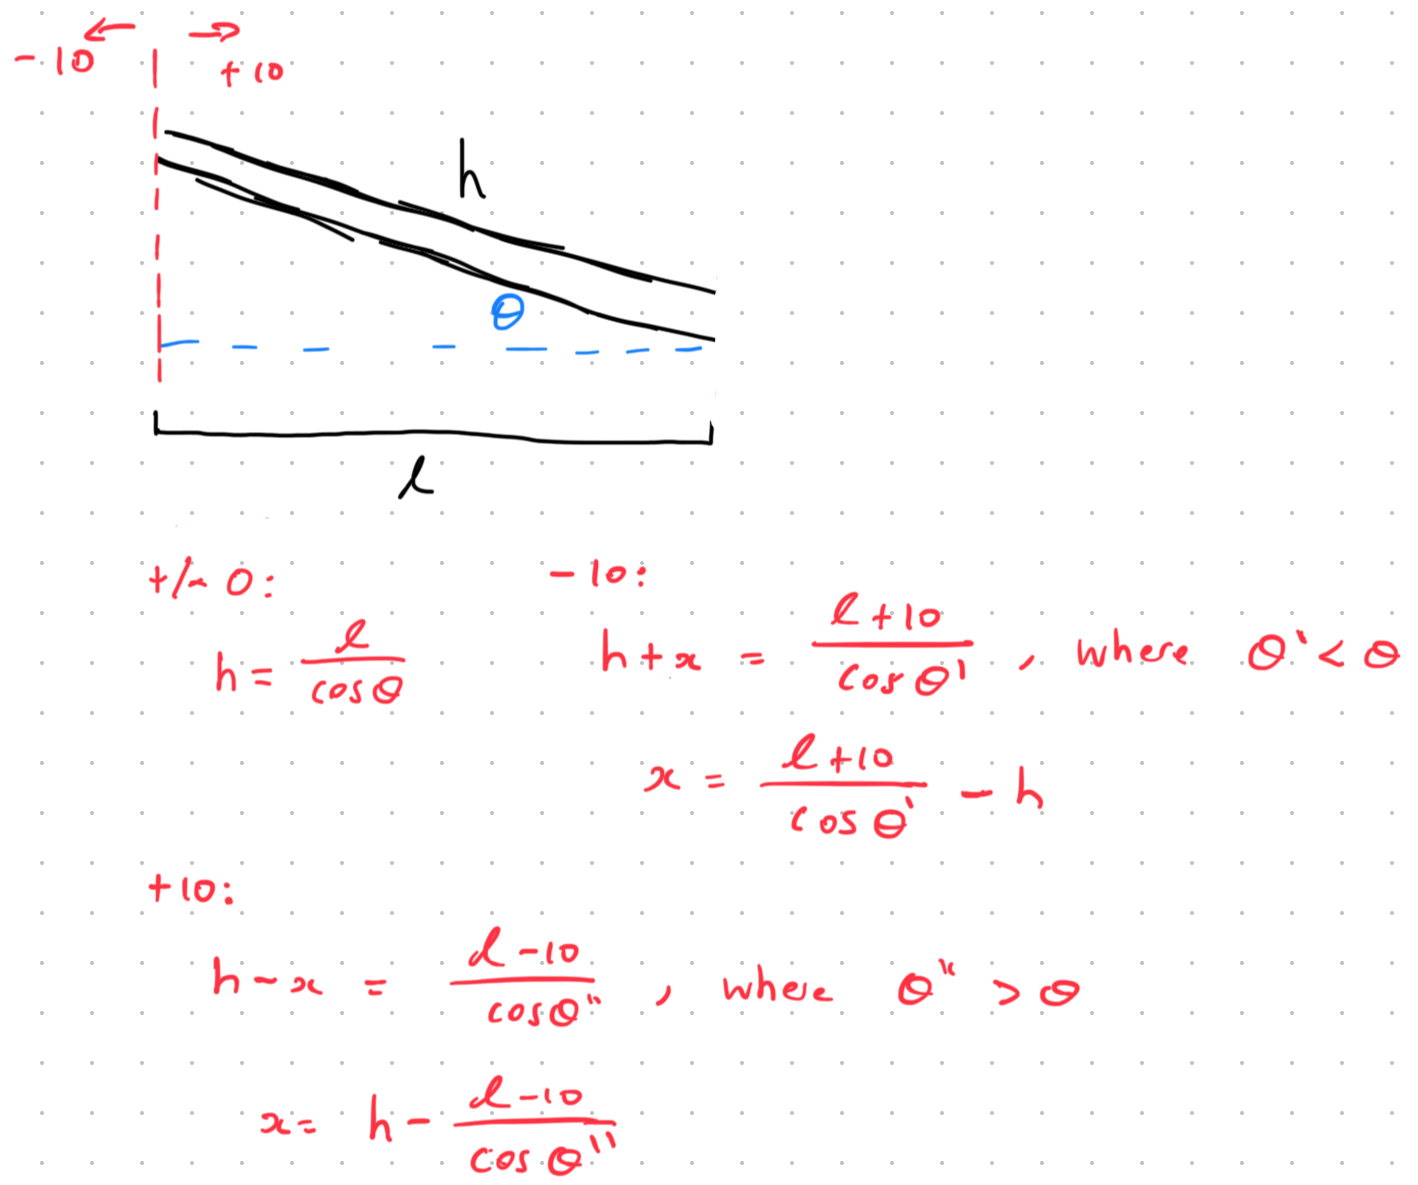 - 10 + 10
h
θ
l
+/- 0:
h = l / cosθ
- 10:
h + x = l + 10 / cos θ' , where θ' < θ
x = l + 10 / cos θ' - h
+ 10:
h - x = l - 10 / cosθ" , where θ" > θ
x = h - l - 10 / cos θ''